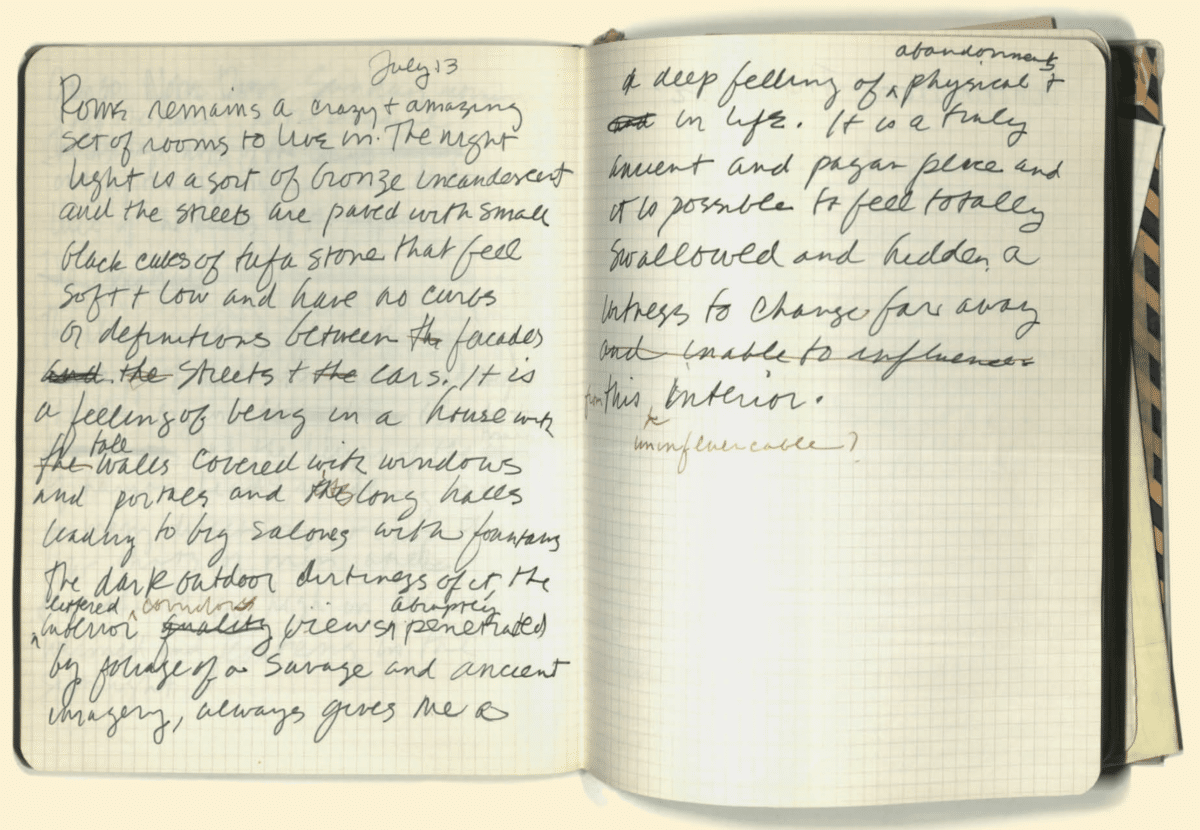 July 13
Rome remains a crazy + amazing
set of rooms to live in. The night
light is a sort of bronze incandescent
and the streets are paved with small
black cubes of tufa stone that feel
soft + low and have no curbs
or definitions between the facades
and the streets + the cars. It is
a feeling of being in a house with
tall
the walls covered with windows
and portals and the long halls
leading to big salones with fountains
the dark outdoor dirtiness of it, the
littered corridors abruptly
interior quality views penetrated
by foliage of a savage and ancient
imagery, always gives me a
abandonment
a deep feeling of physical +
and in life. It is a truly
ancient and pagan place and
it is possible to feel totally
swallowed and hidden, a
witness to change far away
and inable to influence
from this interior.
uninfluencable?